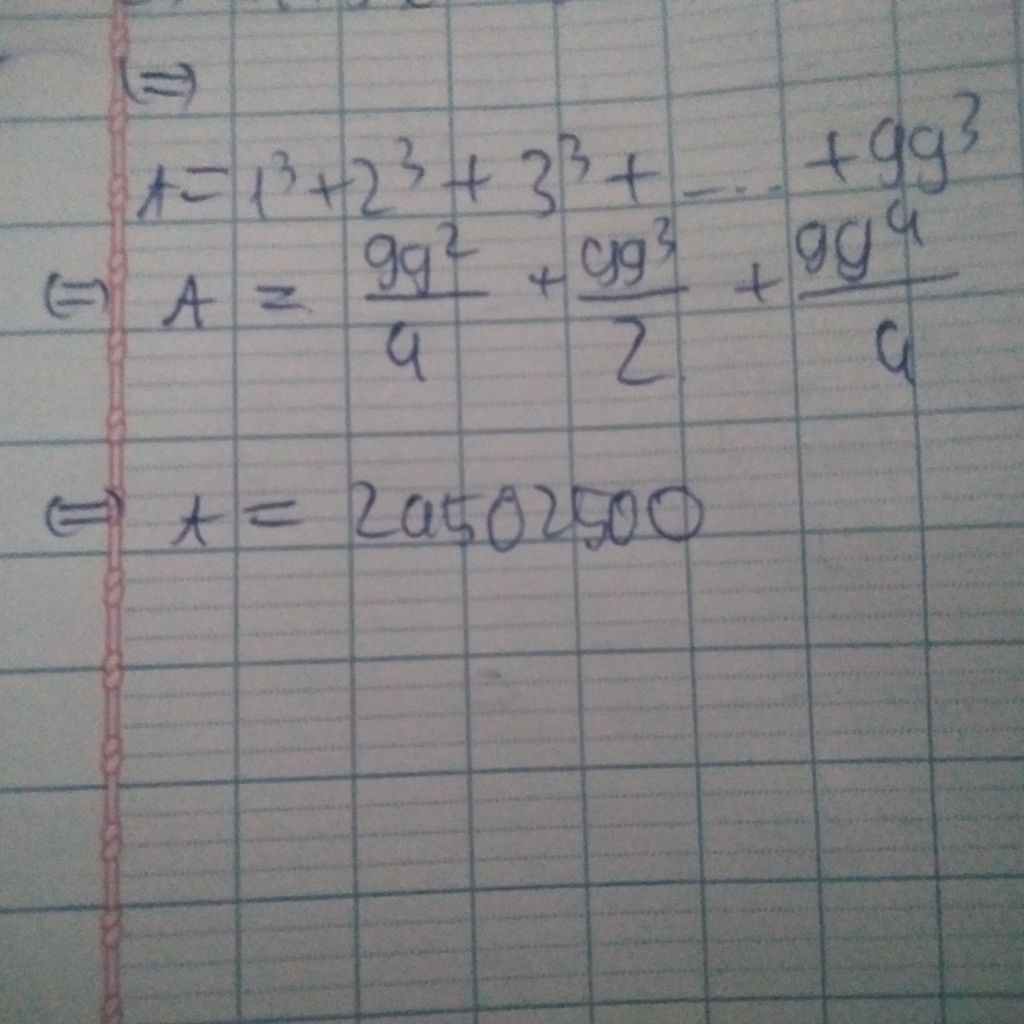 ⇔
A = 1³ + 2³ + 3³ + .... + 99³
⇔ A = 99²/4 + 99³/2 + 99⁴/4
⇔ A = 24502500